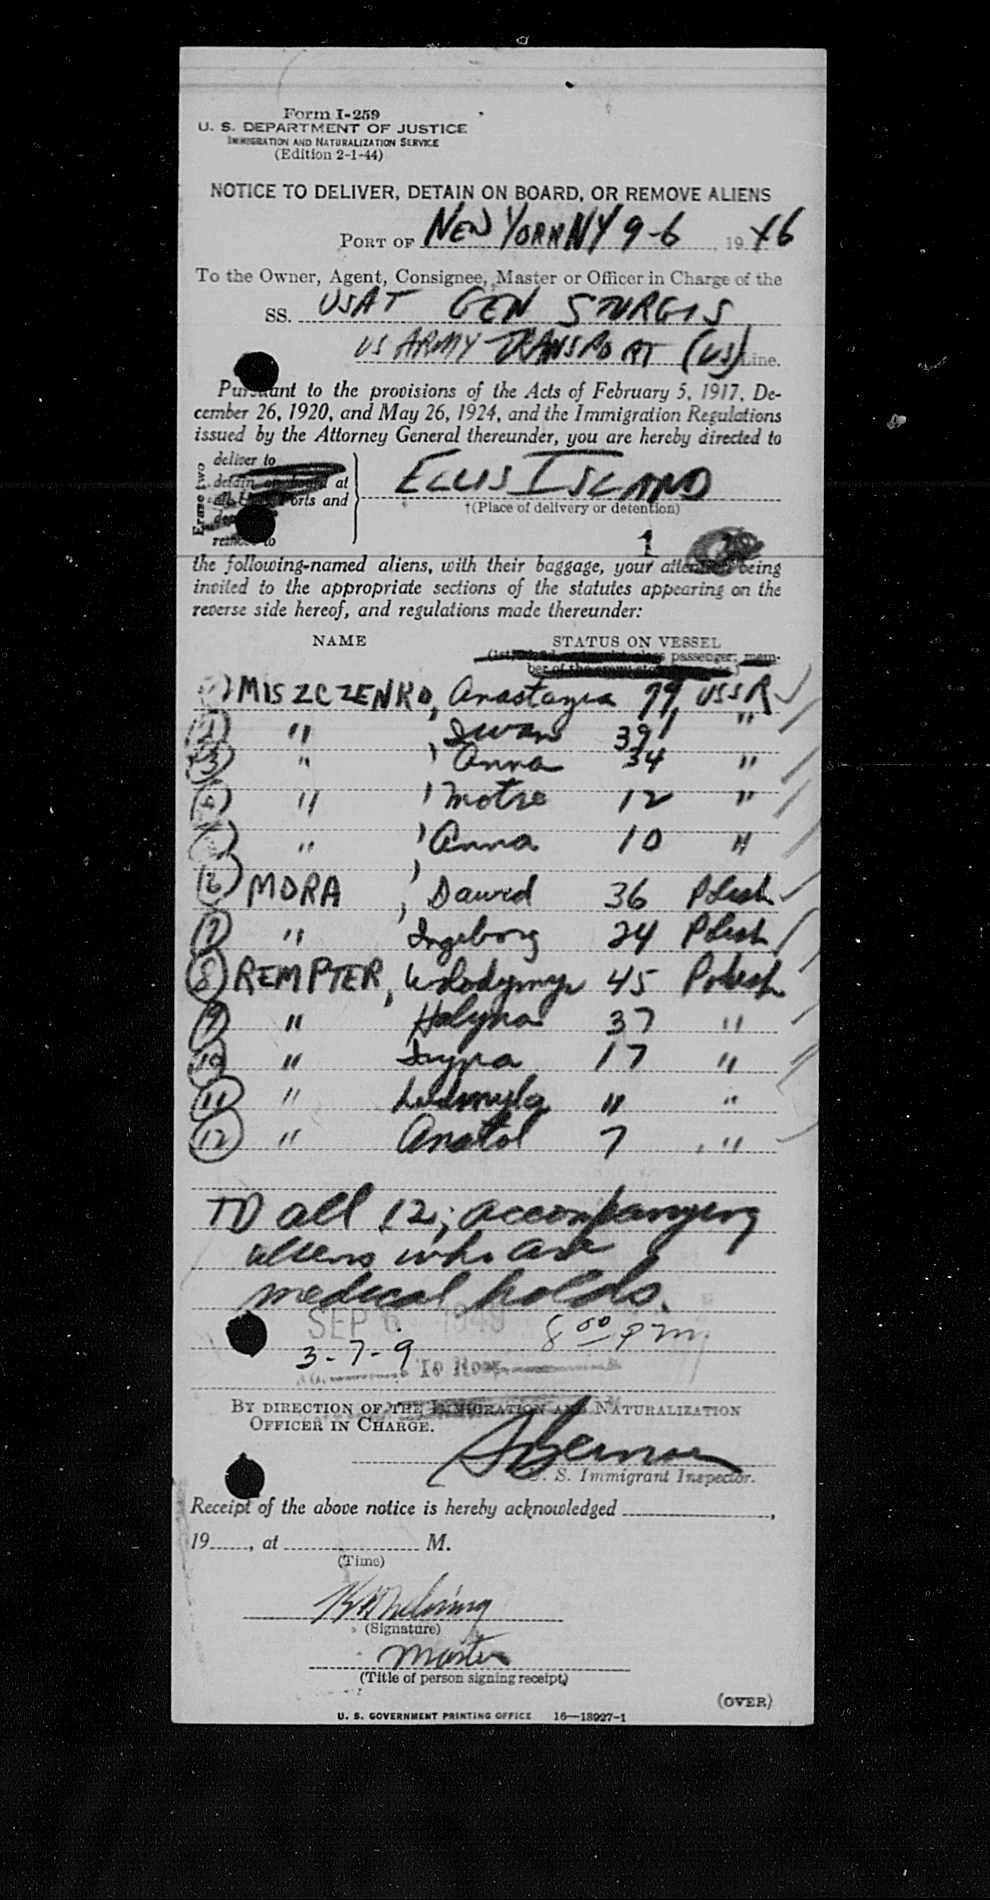 Form I-259
U. S. DEPARTMENT OF JUSTICE
IMMIGRATION AND NATURALIZATION SERVICE
(Edition 2-1-44)
NOTICE TO DELIVER, DETAIN ON BOARD, OR REMOVE ALIENS
PORT OF NEW YORK NY 9-6, 19
To the Owner, Agent, Consignee, Master or Officer in Charge of the
SS. USAT GEN STURGIS
US ARMY TRANSPORT (US) Line.
Pursuant to the provisions of the Acts of February 5, 1917, De-
cember 26, 1920, and May 26, 1924, and the Immigration Regulations
issued by the Attorney General thereunder, you are hereby directed to
Erase two
deliver to
detain on board at
ELLIS ISLAND
Ports and
†(Place of delivery or detention)
remove to
1
the following-named aliens, with their baggage, your attention being
invited to the appropriate sections of the statutes appearing on the
reverse side hereof, and regulations made thereunder:
NAME STATUS ON VESSEL
passenger; mem-
ber of the
MISZCZENKO, Anastazia 79 USSR
(2) " Iwan 39 "
(3) " , Anna 34 "
(4) " , Motre 12 "
" , Anna 10 "
(6) MORA , Dawid 36 Polish
(7) " Ingeborg 24 Polish
(8) REMPTER, Wolodymyr 45 Polish
(9) " Halyna 37 "
(10) " Iryna 17 "
(11) " Ludmyla " "
(12) " Anatol 7 "
TO all 12; accompanying
aliens who are
medical holds.
SEP 6 1949 8 00 PM.
3-7-9
To Room
BY DIRECTION OF THE IMMIGRATION AND NATURALIZATION
OFFICER IN CHARGE.
U. S. Immigrant Inspector.
Receipt of the above notice is hereby acknowledged ,
19 , at M.
(Time)
(Signature)
Master
(Title of person signing receipt)
(OVER)
U. S. GOVERNMENT PRINTING OFFICE 16—18927-1